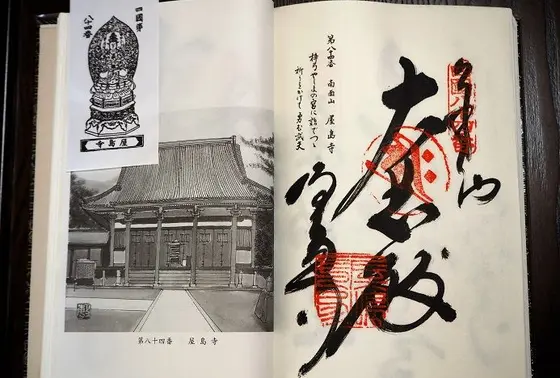 四國第
八十四番
屋島寺
第八十四番　屋島寺
第八十四番　南面山　屋島寺
梓弓やしまの宮に詣でつゝ
祈りをかけて勇む武夫
奉納
大悲殿
屋島寺